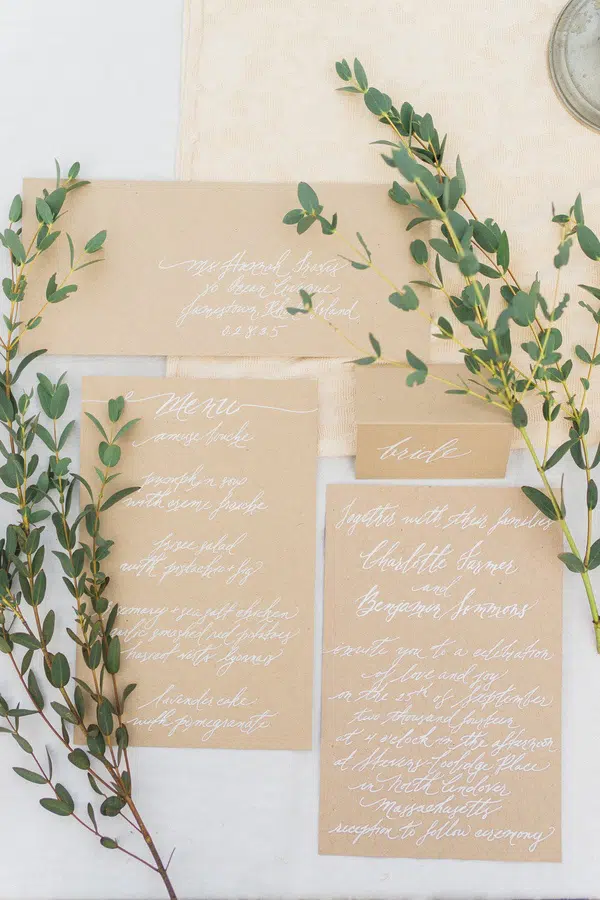 Ms Hannah Travis
36 Ocean Avenue
Jamestown, Rhode Island
02835
Menu
amuse bouche
pumpkin soup
with creme fraiche
frisee salad
with pistachio + fig
rosemary + sea salt chicken
with smashed red potatoes
harvest
lavender cake
with pomegranate
bride
Together with their families
Charlotte Farmer
and
Benjamin Simmons
invite you to a celebration
of love and joy
on the 25th of September
two thousand fourteen
at 4 o'clock in the afternoon
at Stevens-Coolidge Place
in North Andover
Massachusetts
reception to follow ceremony